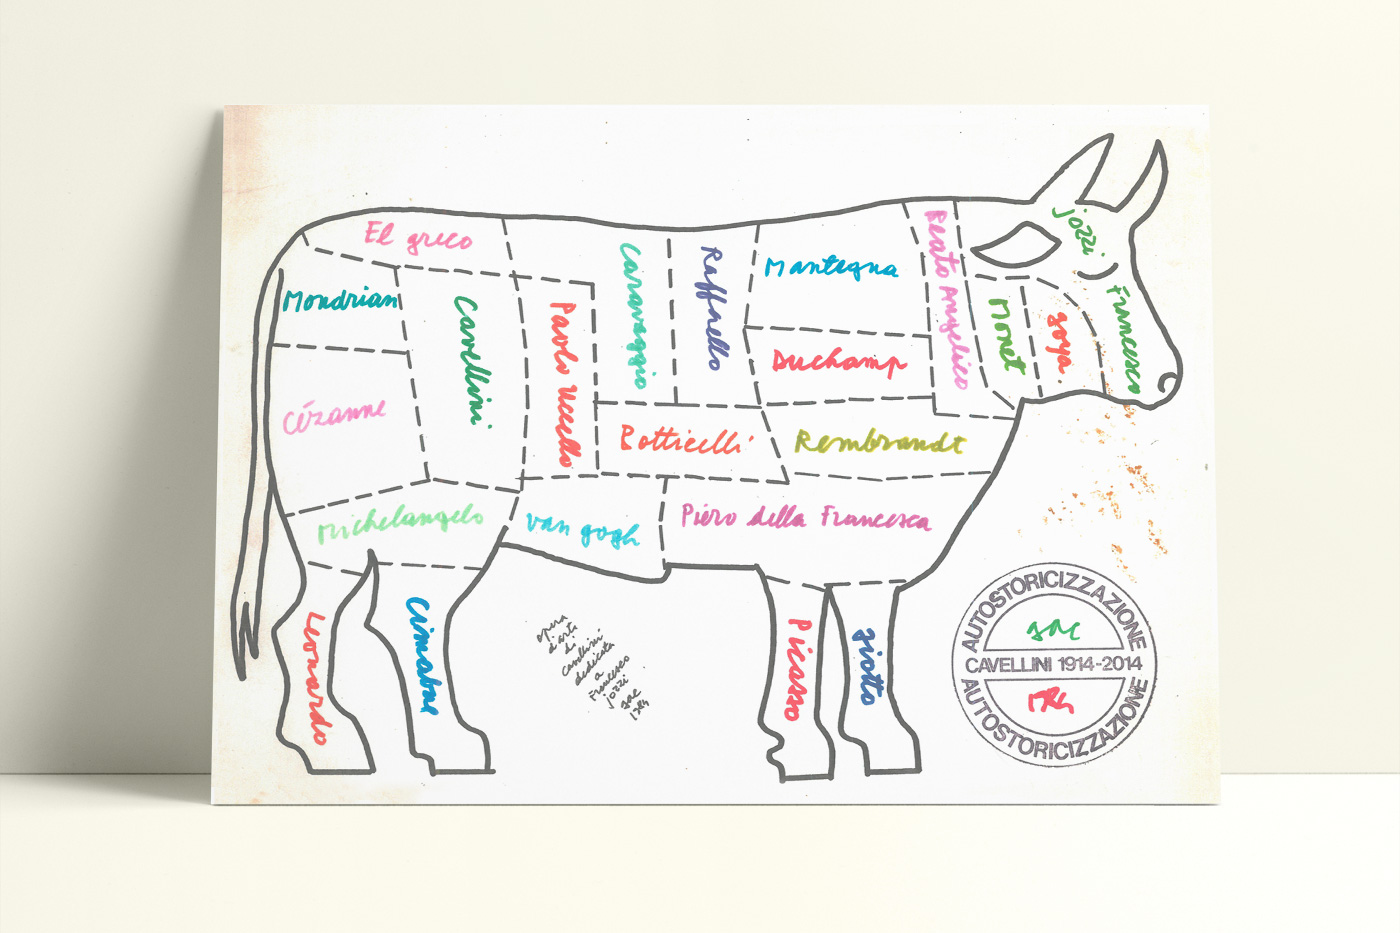 El greco
Mondrian
Cavellini
Paolo Uccello
Caravaggio
Raffaello
Mantegna
Beato Angelico
jozzi
Francesco
Monet
goya
Duchamp
Cézanne
Botticelli
Rembrandt
Michelangelo
van gogh
Piero della Francesca
Leonardo
Cimabue
Picasso
giotto
opera
d'arte
di
cavellini
dedicata
a
Francesco
jozzi
gac
AUTOSTORICIZZAZIONE
gac
CAVELLINI 1914-2014
AUTOSTORICIZZAZIONE